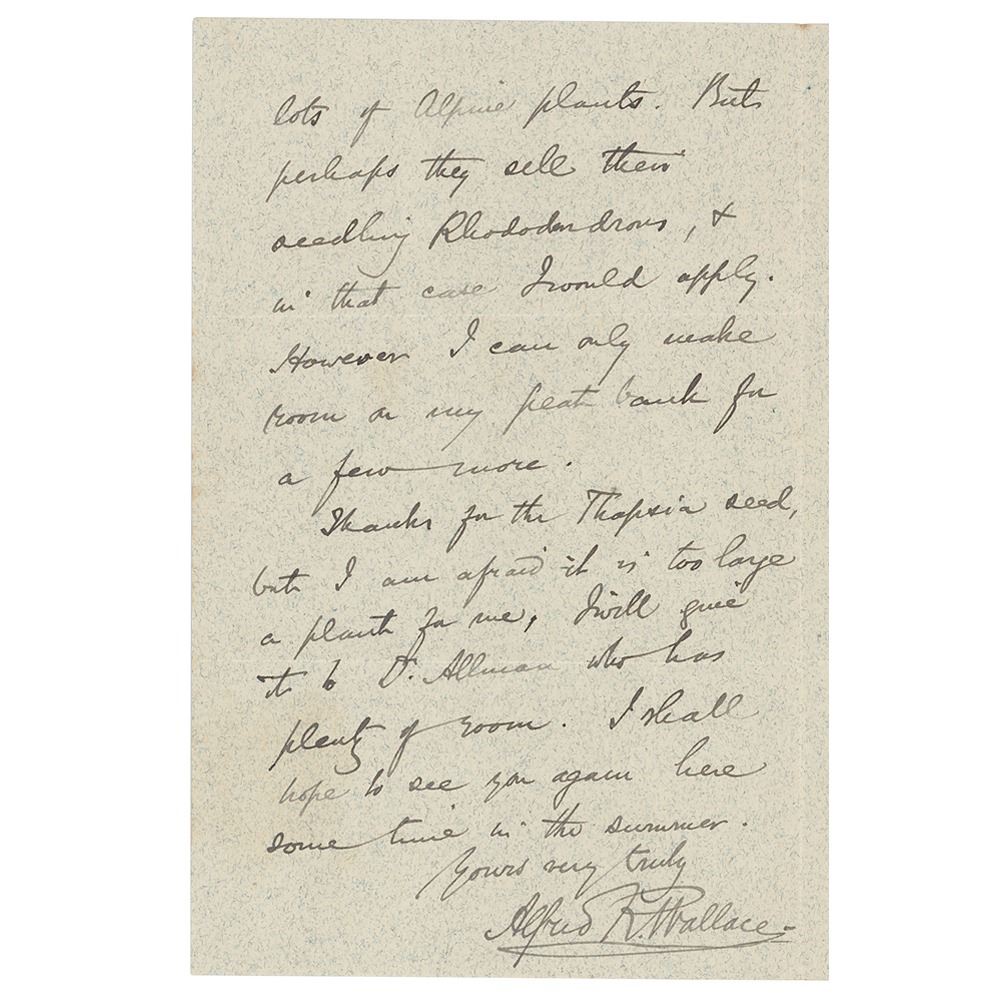 lots of Alpine plants. But
perhaps they sell their
seedling Rhododendrons, &
in that case I would apply.
However I can only make
room on my peat bank for
a few more.
Thanks for the Thapsia seed,
but I am afraid it is too large
a plant for me, I will give
it to Dr. Allman who has
plenty of room. I shall
hope to see you again here
some time in the summer.
Yours very truly
Alfred R. Wallace